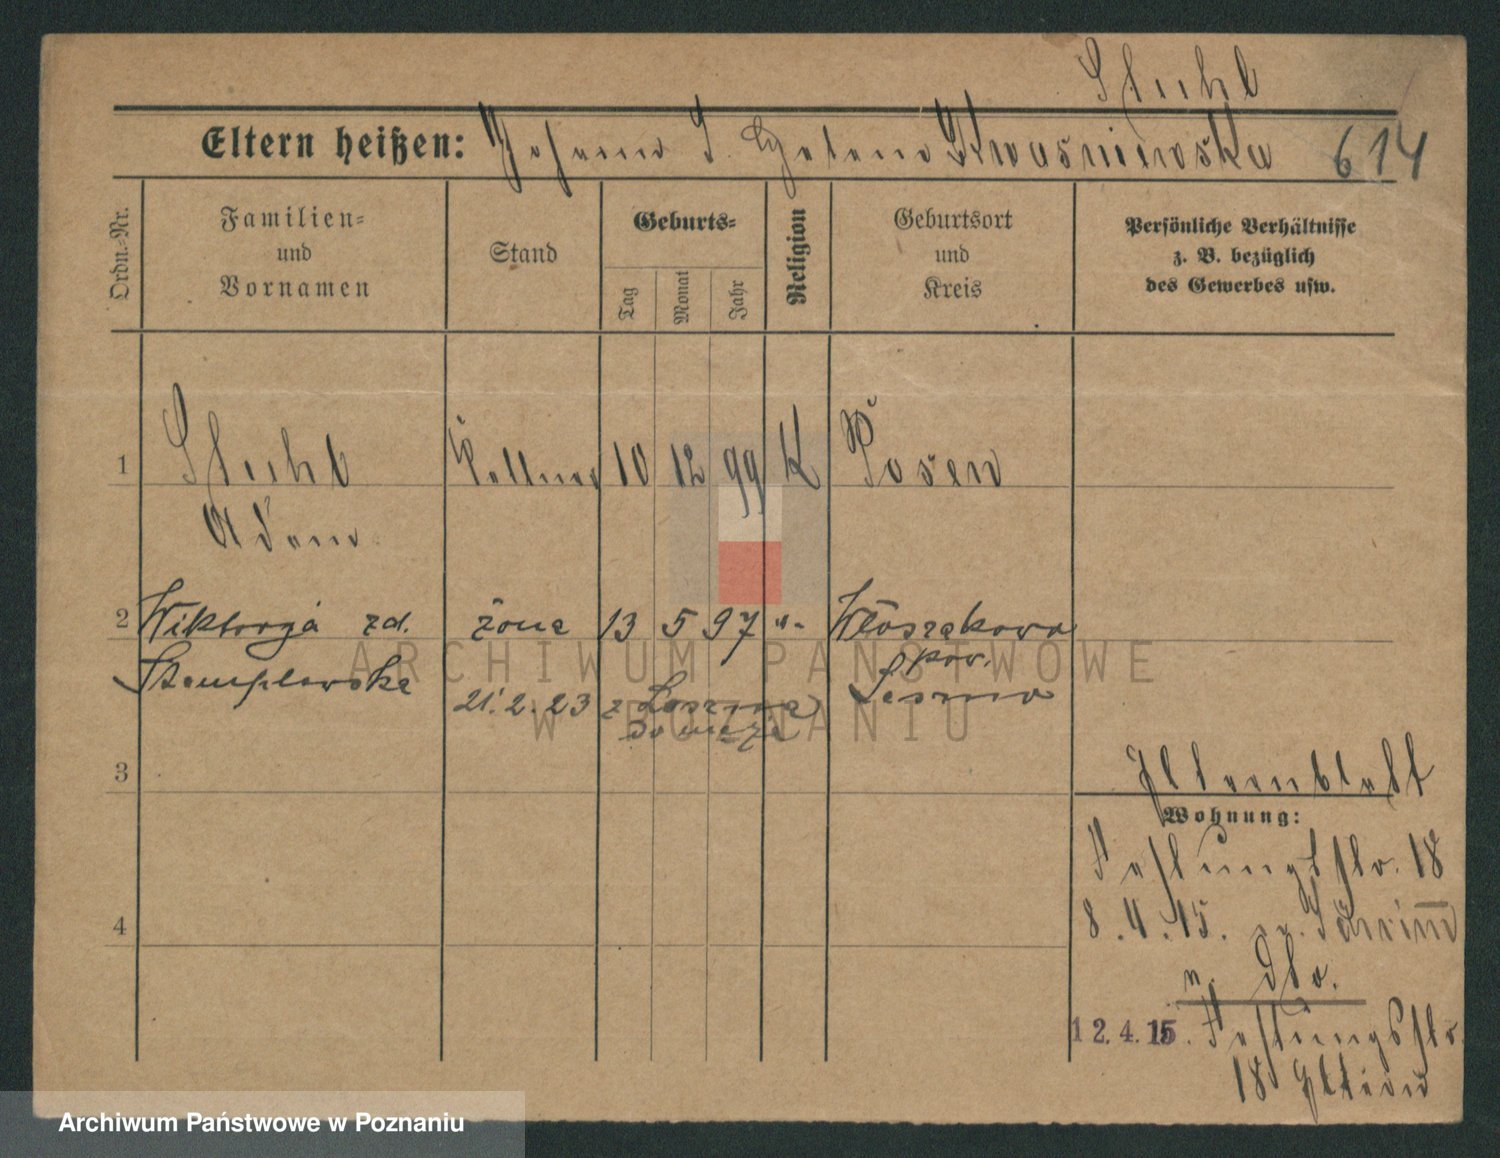 Stuhl
Eltern heißen: Johann I. Helene Kwasniewska 614
Ordn.=Nr.
Familien=
und
Vornamen
Stand
Geburts=
Tag
Monat
Jahr
Religion
Geburtsort
und
Kreis
Persönliche Verhältnisse
z. B. bezüglich
des Gewerbes usw.
1 Stuhl Kellner 10 12 99 K Posen
Adam
2 Wiktorja zd. żona 13 5 97 "- Włoszakowo
pow.
Leszno
21.2.23 z Leszna
do męża
3
Elternblatt
Wohnung:
Festungsstr. 18
8.4.15. Schrimm
n. Str.
4
12.4.15. Festungsstr.
18 Eltern
ARCHIWUM PAŃSTWOWE
W POZNANIU
Archiwum Państwowe w Poznaniu